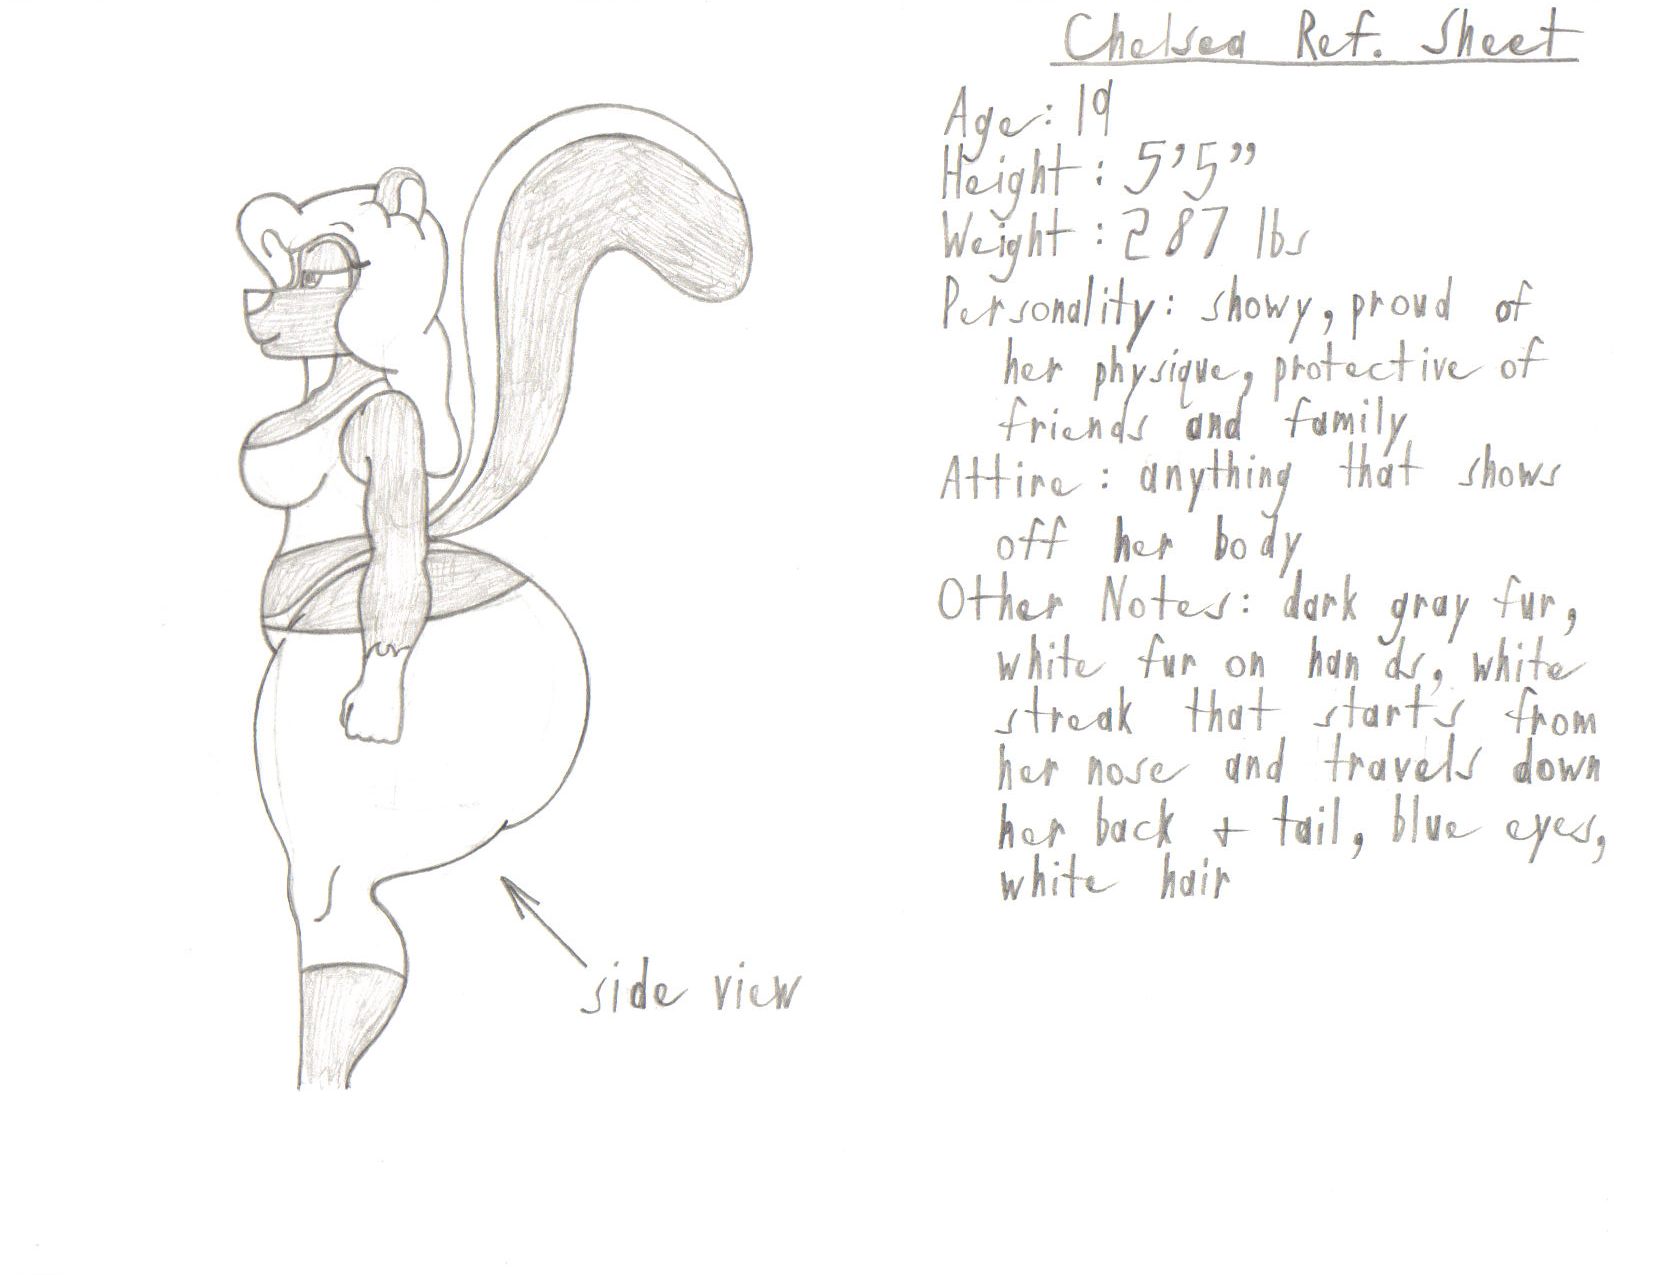 Chelsea Ref. Sheet
Age: 19
Height: 5'5"
Weight: 287 lbs
Personality: showy, proud of
her physique, protective of
friends and family
Attire: anything that shows
off her body
Other Notes: dark gray fur,
white fur on hands, white
streak that starts from
her nose and travels down
her back + tail, blue eyes,
white hair
side view